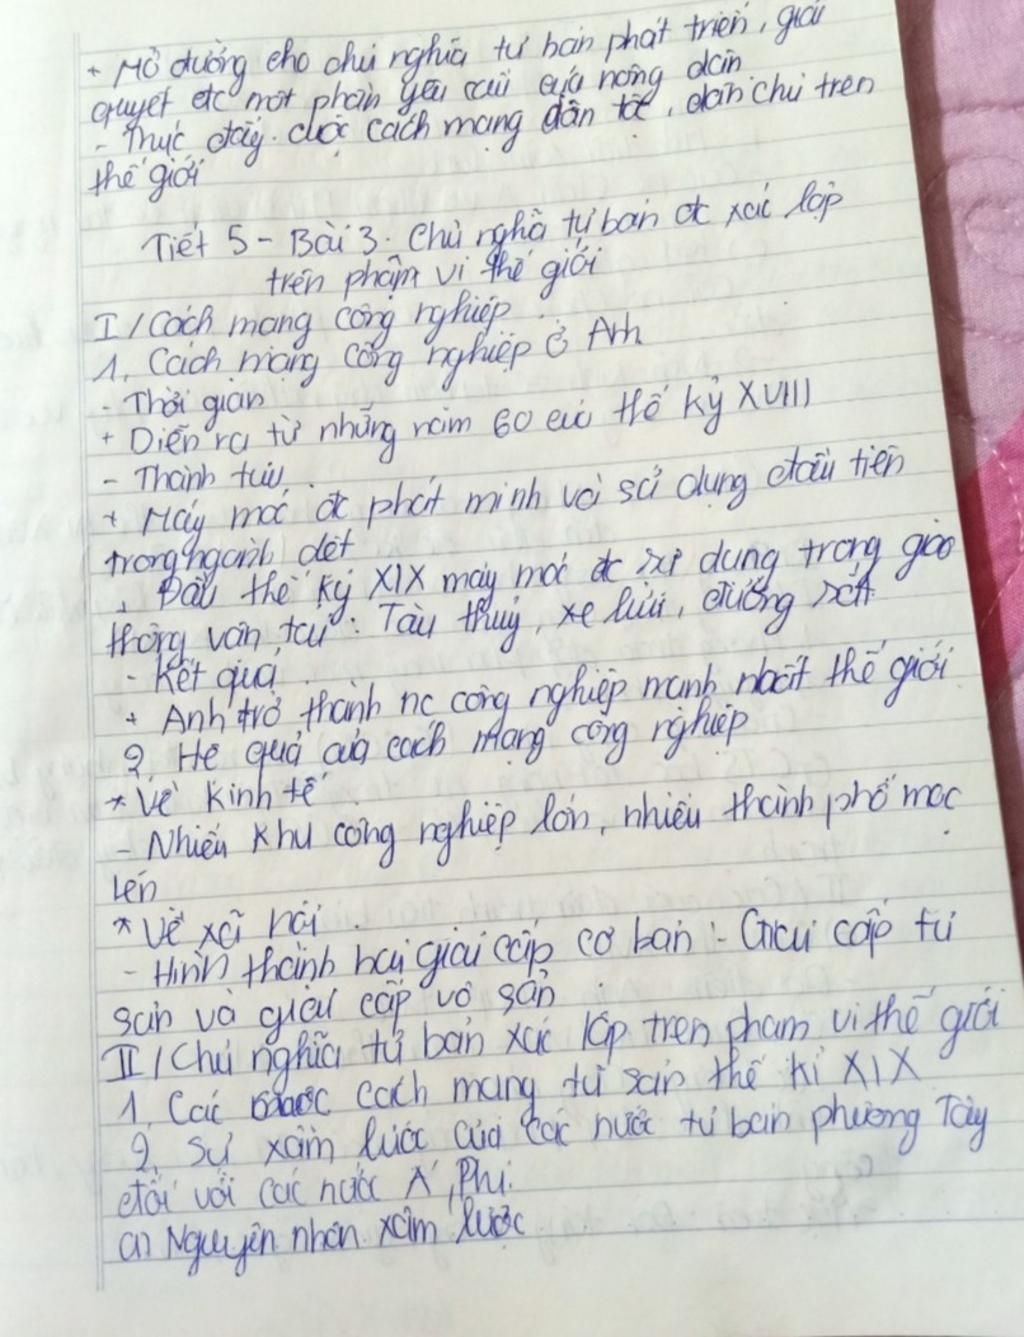 + Mở đường cho chủ nghĩa tư bản phát triển, giải
quyết đc một phần yêu cầu của nông dân
- Thúc đẩy cuộc cách mạng dân tộc, dân chủ trên
thế giới
Tiết 5 - Bài 3. Chủ nghĩa tư bản đc xác lập
trên phạm vi thế giới
I / Cách mạng công nghiệp
1. Cách mạng công nghiệp ở Anh
- Thời gian
+ Diễn ra từ những năm 60 của thế kỷ XVIII
- Thành tựu
+ Máy móc đc phát minh và sử dụng đầu tiên
trong ngành dệt
+ Đầu thế kỷ XIX máy móc đc sử dụng trong giao
thông vận tải : Tàu thuỷ, xe lửa, đường sắt
- Kết quả
+ Anh trở thành nc công nghiệp mạnh nhất thế giới
2. Hệ quả của cách mạng công nghiệp
* Về kinh tế
- Nhiều khu công nghiệp lớn, nhiều thành phố mọc
lên
* Về xã hội
- Hình thành hai giai cấp cơ bản :- Giai cấp tư
sản và giai cấp vô sản
II / Chủ nghĩa tư bản xác lập trên phạm vi thế giới
1. Các cuộc cách mạng tư sản thế kỉ XIX
2. Sự xâm lược của các nước tư bản phương Tây
đối với các nước Á, Phi.
a) Nguyên nhân xâm lược